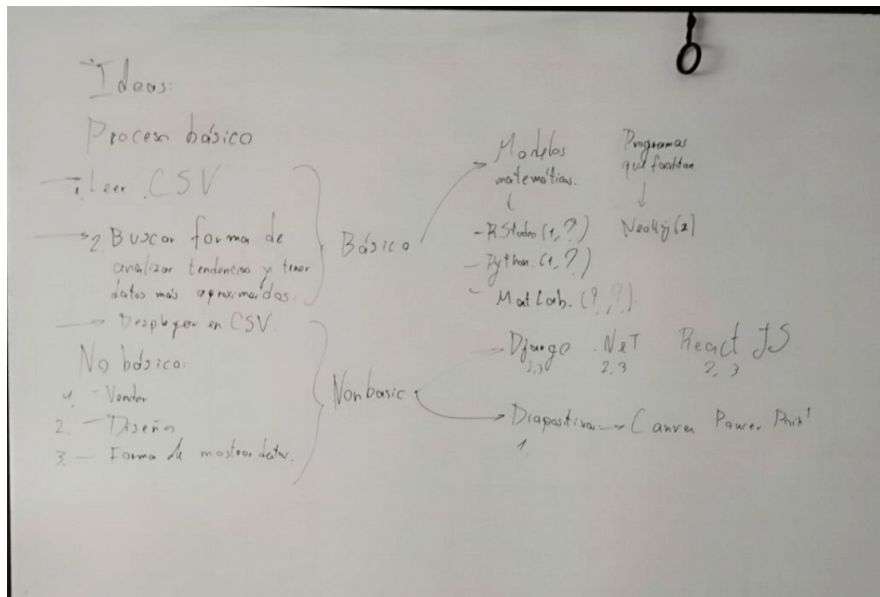 Ideas:
Proceso básico
1. Leer .CSV
2. Buscar forma de
analizar tendencias y tener
datos más aproximados.
Desplegar en CSV.
No básico:
1. - Vender
2. - Diseño
3. - Forma de mostrar datos.
Básico
Nonbasic
Modelos
matemáticos.
- RStudio (1, ?)
- Python. (1, ?)
- MatLab. (?, ?)
Programas
que facilitan
(2)
Django .NeT React JS
2,3 2,3 2, 3
Diapositivas Canva Power Point
1.